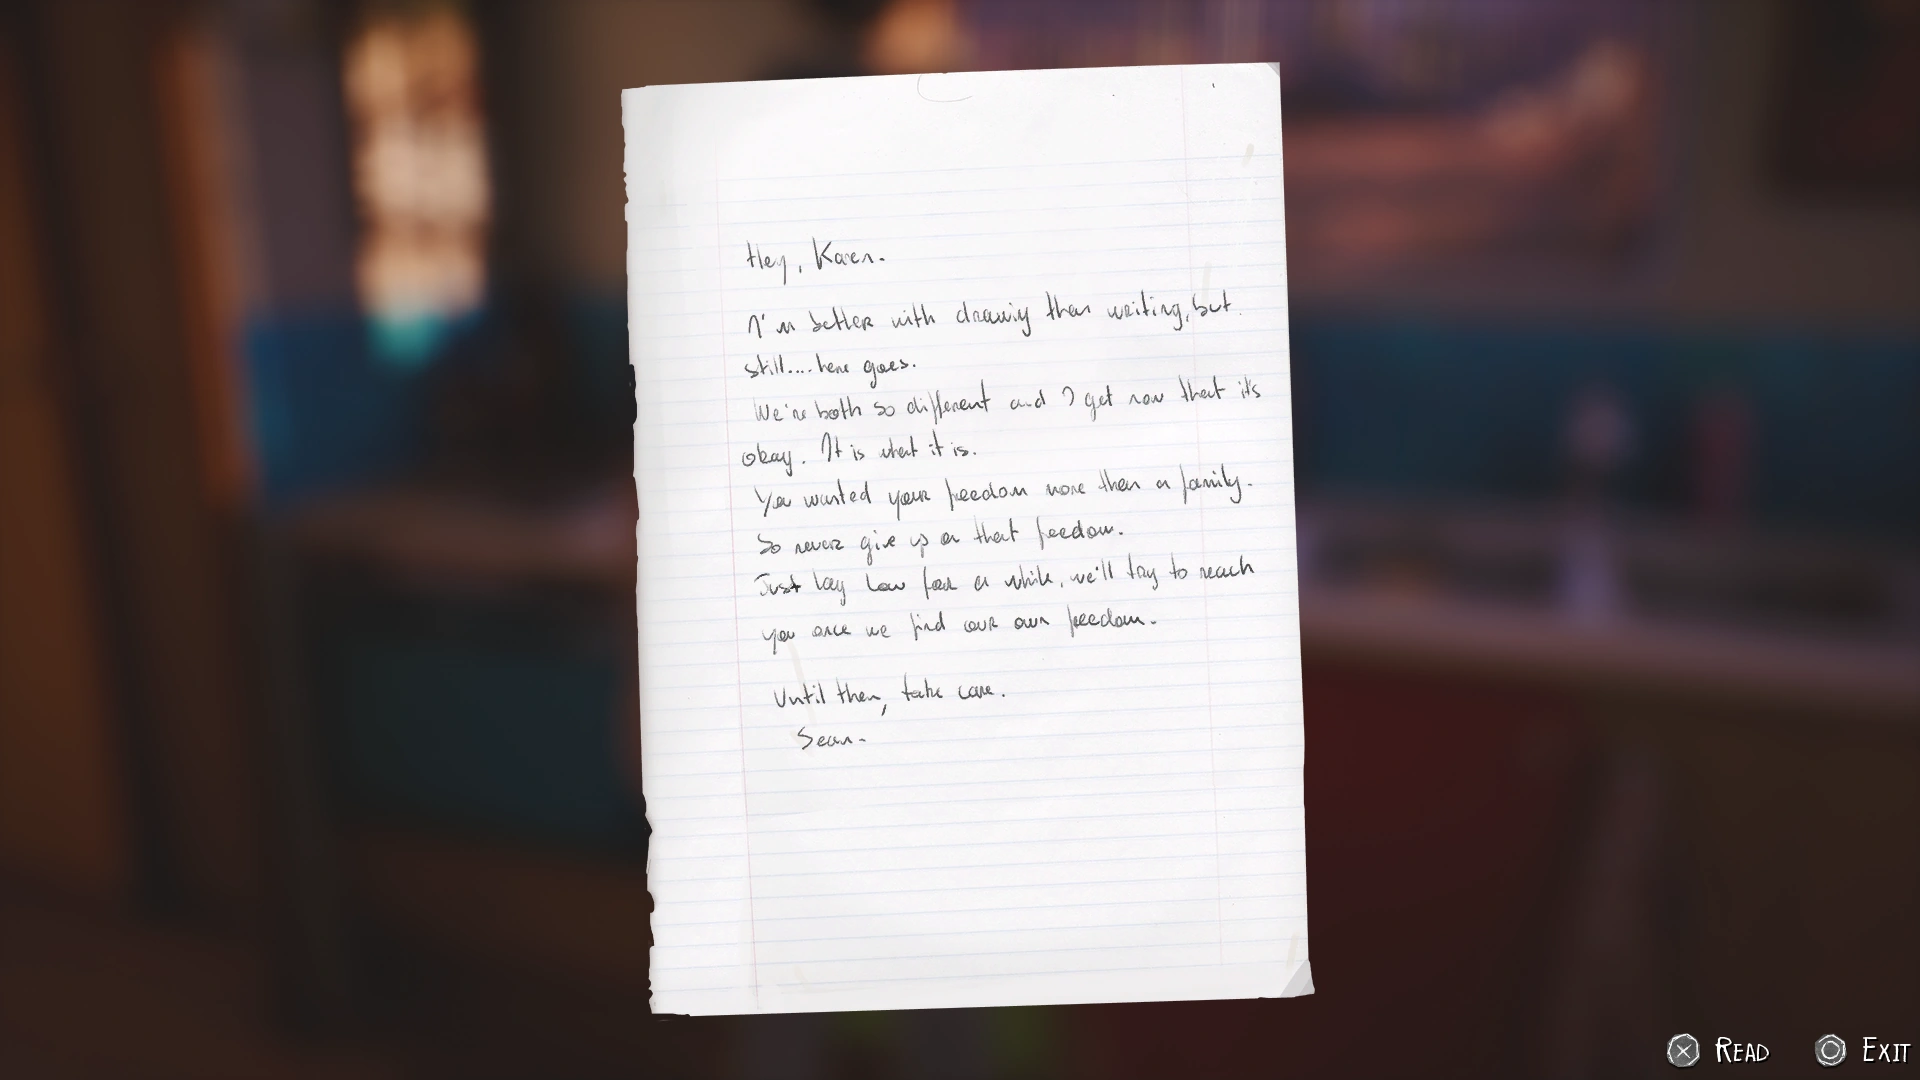 Hey, Karen.
I'm better with drawing than writing, but
still.... here goes.
We're both so different and I get now that it's
okay. It is what it is.
You wanted your freedom more than a family.
So never give up on that freedom.
Just lay low for a while, we'll try to reach
you once we find our own freedom.
Until then, take care.
Sean.
READ
EXIT